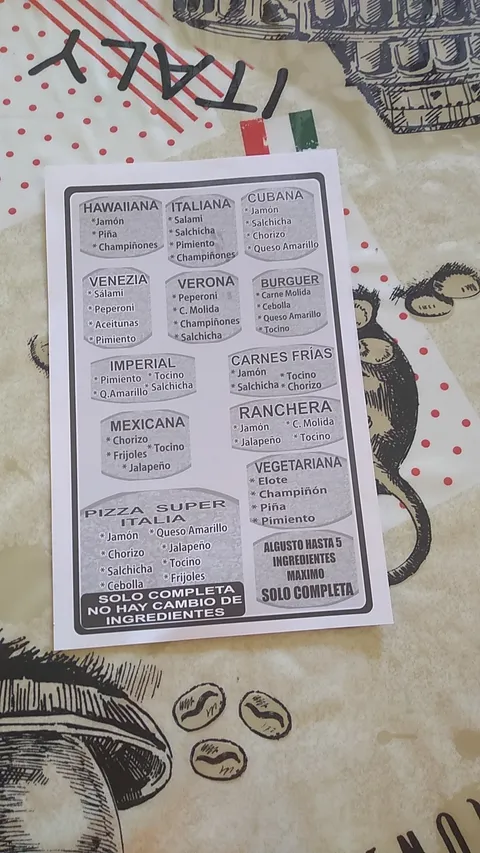 ITALY
HAWAIIANA
*Jamón
* Piña
* Champiñones
ITALIANA
* Salami
* Salchicha
* Pimiento
* Champiñones
CUBANA
* Jamón
* Salchicha
* Chorizo
* Queso Amarillo
VENEZIA
* Sálami
* Peperoni
* Aceitunas
* Pimiento
VERONA
* Peperoni
* C. Molida
* Champiñones
* Salchicha
BURGUER
* Carne Molida
* Cebolla
* Queso Amarillo
* Tocino
IMPERIAL
* Pimiento * Tocino
* Q.Amarillo Salchicha
CARNES FRÍAS
* Jamón * Tocino
* Salchicha * Chorizo
MEXICANA
* Chorizo
* Frijoles * Tocino
* Jalapeño
RANCHERA
* Jamón * C. Molida
* Jalapeño * Tocino
VEGETARIANA
* Elote
* Champiñón
* Piña
* Pimiento
PIZZA SUPER
ITALIA
* Jamón * Queso Amarillo
* Chorizo * Jalapeño
* Salchicha * Tocino
* Cebolla * Frijoles
SOLO COMPLETA
NO HAY CAMBIO DE
INGREDIENTES
ALGUSTO HASTA 5
INGREDIENTES
MAXIMO
SOLO COMPLETA